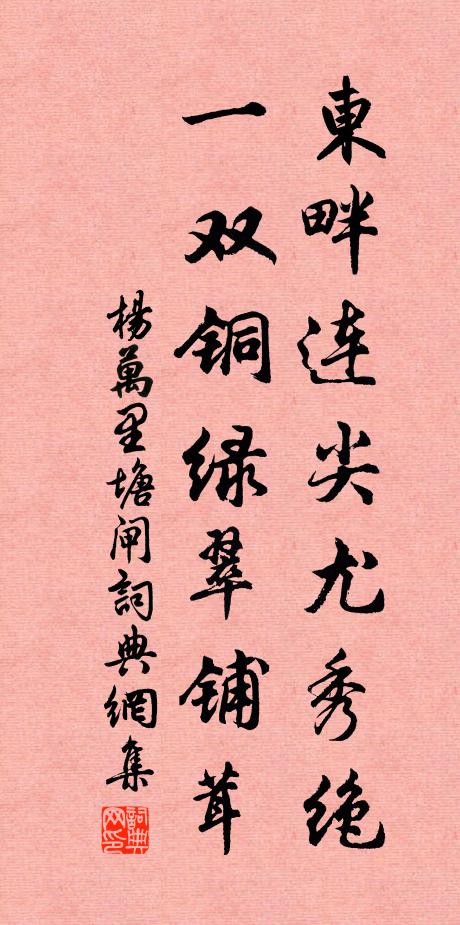 東畔连尖尤秀绝
一双铜绿翠铺茸
楊萬里塘闸詞典網集
詞典网印